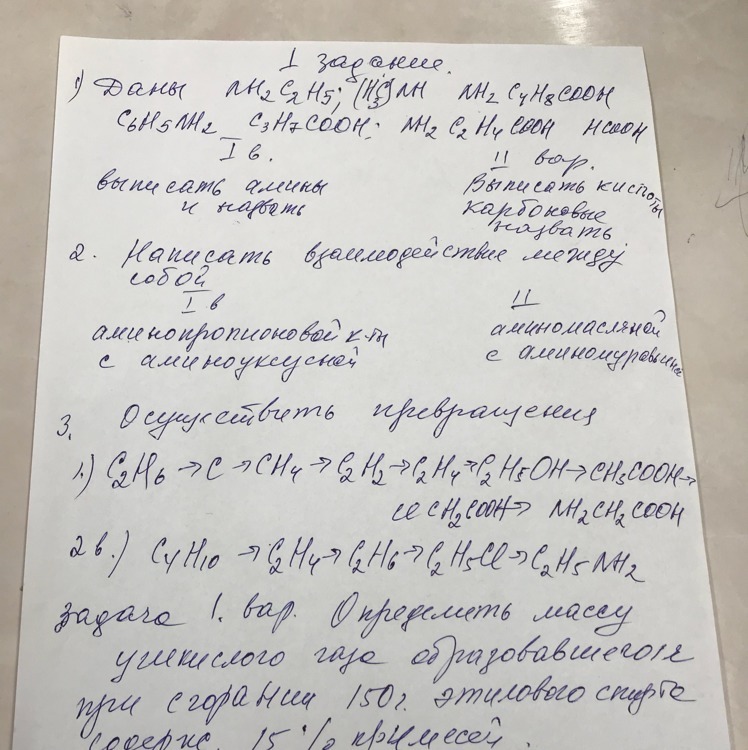 I задание.
1) Даны NH2C2H5; (H3C)NH NH2C4H8COOH
C6H5NH2 C3H7COOH; NH2C2H4COOH HCOOH
I в. II вар.
выписать амины Выписать кислоты
и назвать карбоновые
назвать
2. Написать взаимодействие между
собой
I в II
аминопропионовой к-ты аминомасляной
с аминоуксусной с аминомуравьиной
3. Осуществить превращения
1.) C2H6 → C → CH4 → C2H2 → C2H4 → C2H5OH → CH3COOH →
ClCH2COOH → NH2CH2COOH
2 в.) C4H10 → C2H4 → C2H6 → C2H5Cl → C2H5NH2
Задача 1. вар. Определить массу
углекислого газа образовавшегося
при сгорании 150 г. этилового спирта
содерж. 15 % примесей.